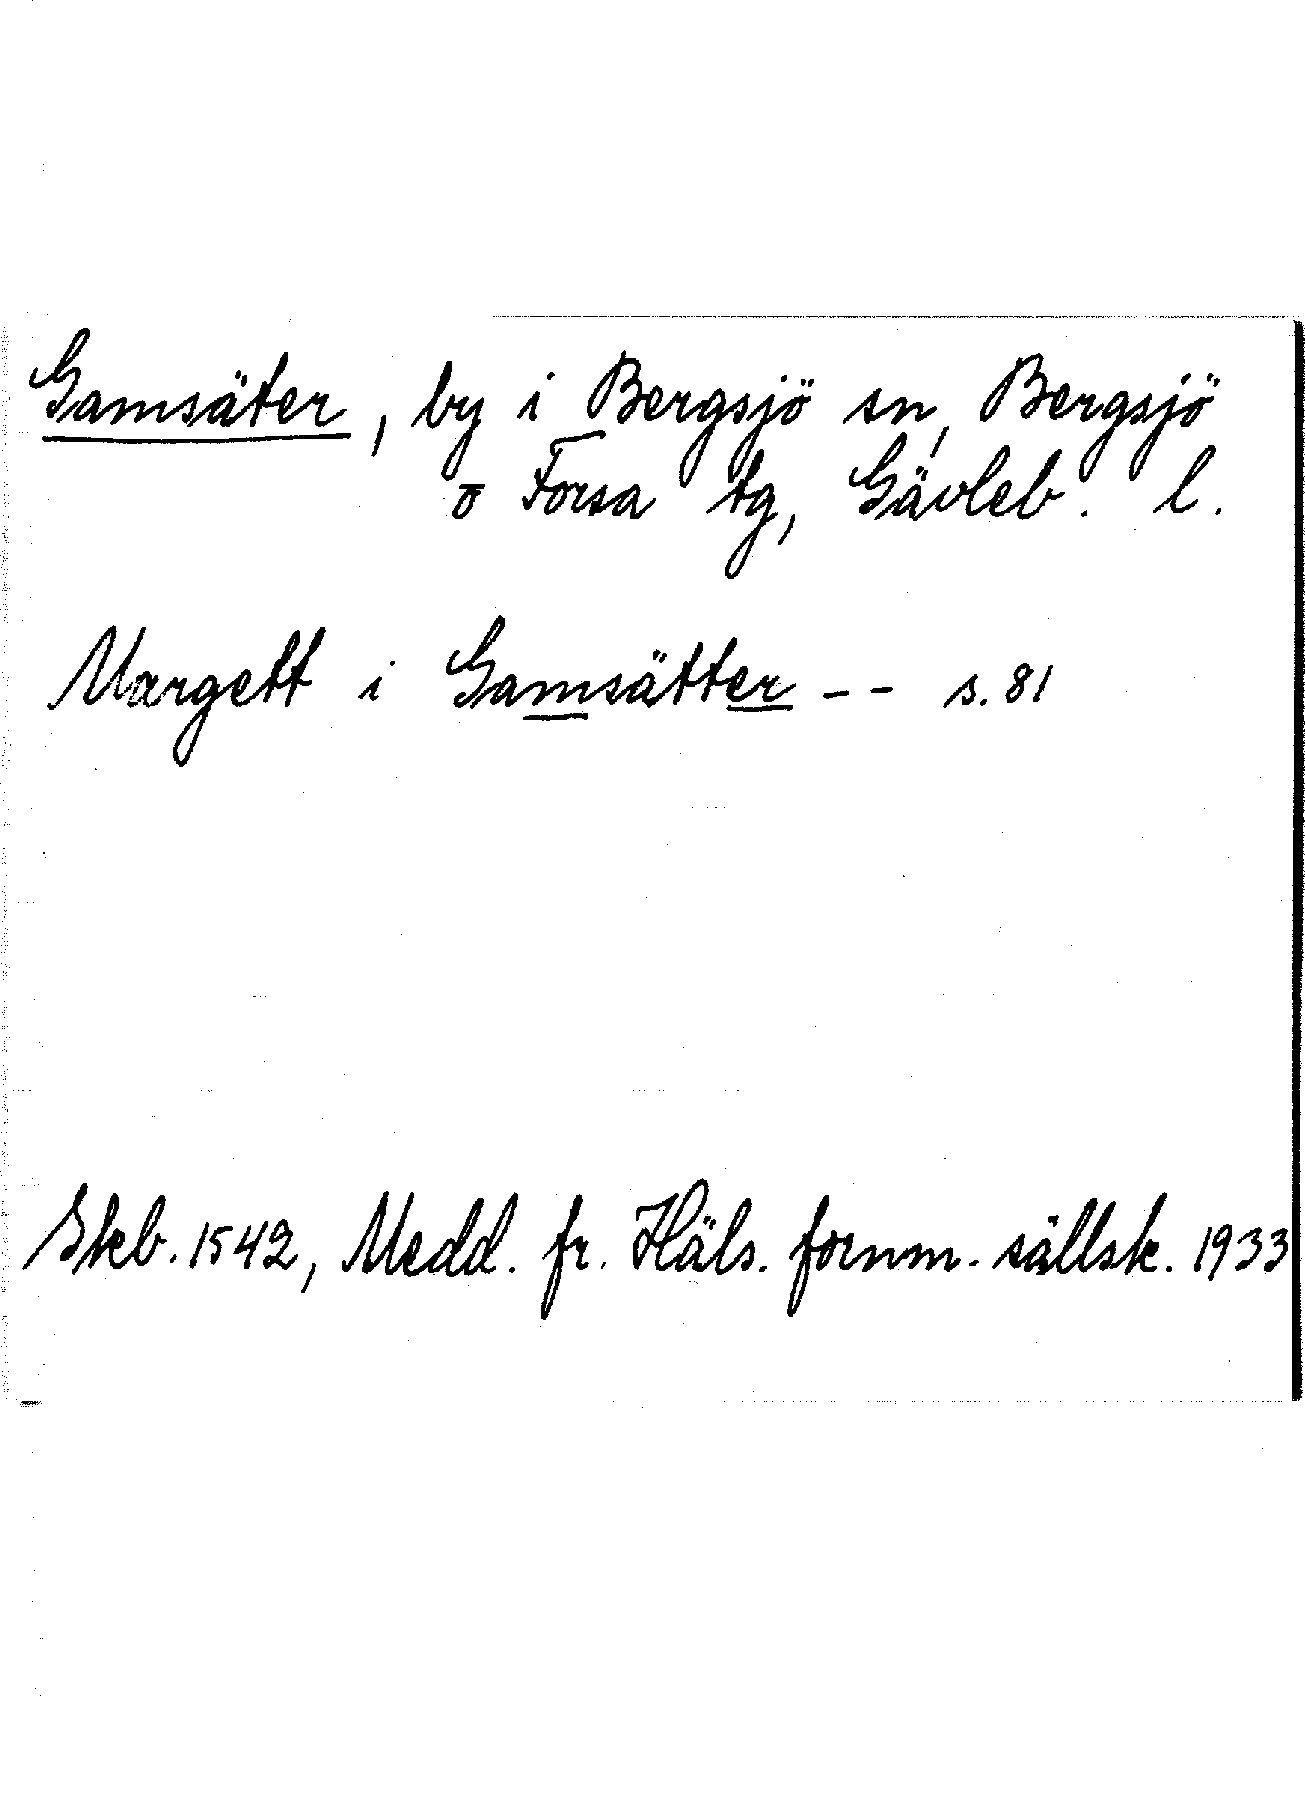 Gamsäter, by i Bergsjö sn, Bergsjö
o Forsa tg, Gävleb. l.
Margett i Gamsätter -- s. 81
Skb. 1542, Medd. fr. Häls. fornm. sällsk. 1933